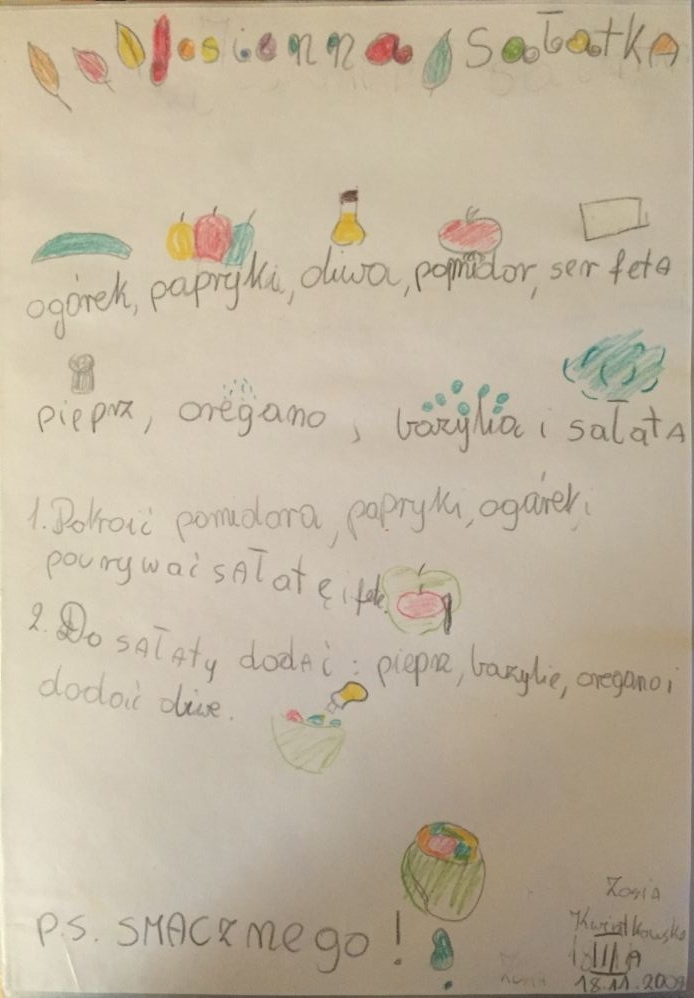 Jesienna sałatka
ogórek, papryki, oliwa, pomidor, ser fetA
pieprz, oregano, bazylia i sałatA
1. Pokroić pomidora, papryki, ogórek i
pourywać sAłatę i fetę.
2. Do sAłAty dodAć : pieprz, bazylię, oregano i
dodać oliwę.
P.S. SMACZNego!
Zosia
Kwiatkowska
III A
18.11.2009